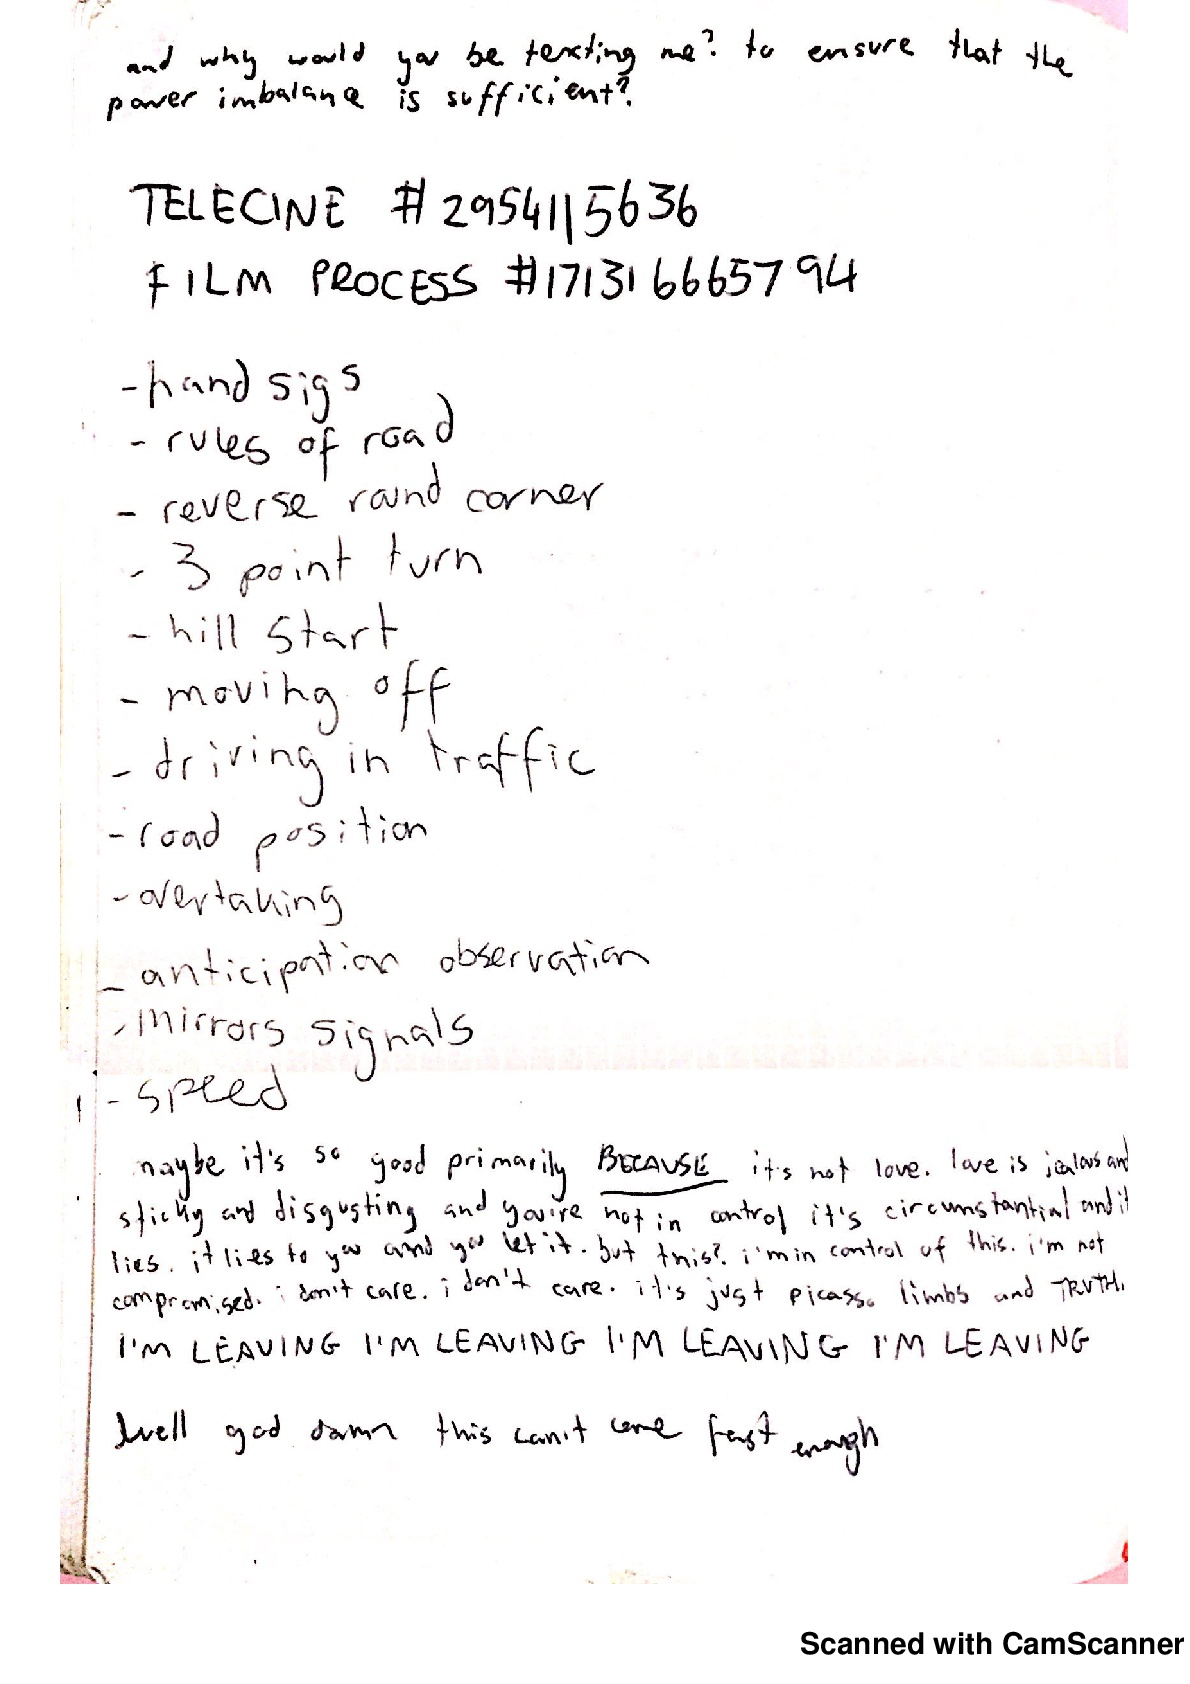 and why would you be texting me? to ensure that the
power imbalance is sufficient?
TELECINE #2954115636
FILM PROCESS #171316665794
- hand sigs
- rules of road
- reverse round corner
- 3 point turn
- hill start
- moving off
- driving in traffic
- road position
- overtaking
- anticipation observation
- mirrors signals
- speed
maybe it's so good primarily BECAUSE it's not love. love is jealous and
sticky and disgusting and you're not in control it's circumstantial and it
lies. it lies to you and you let it. but this? i'm in control of this. i'm not
compromised. i don't care. i don't care. it's just picasso limbs and TRUTH.
I'M LEAVING I'M LEAVING I'M LEAVING I'M LEAVING
well god damn this can't come fast enough
Scanned with CamScanner